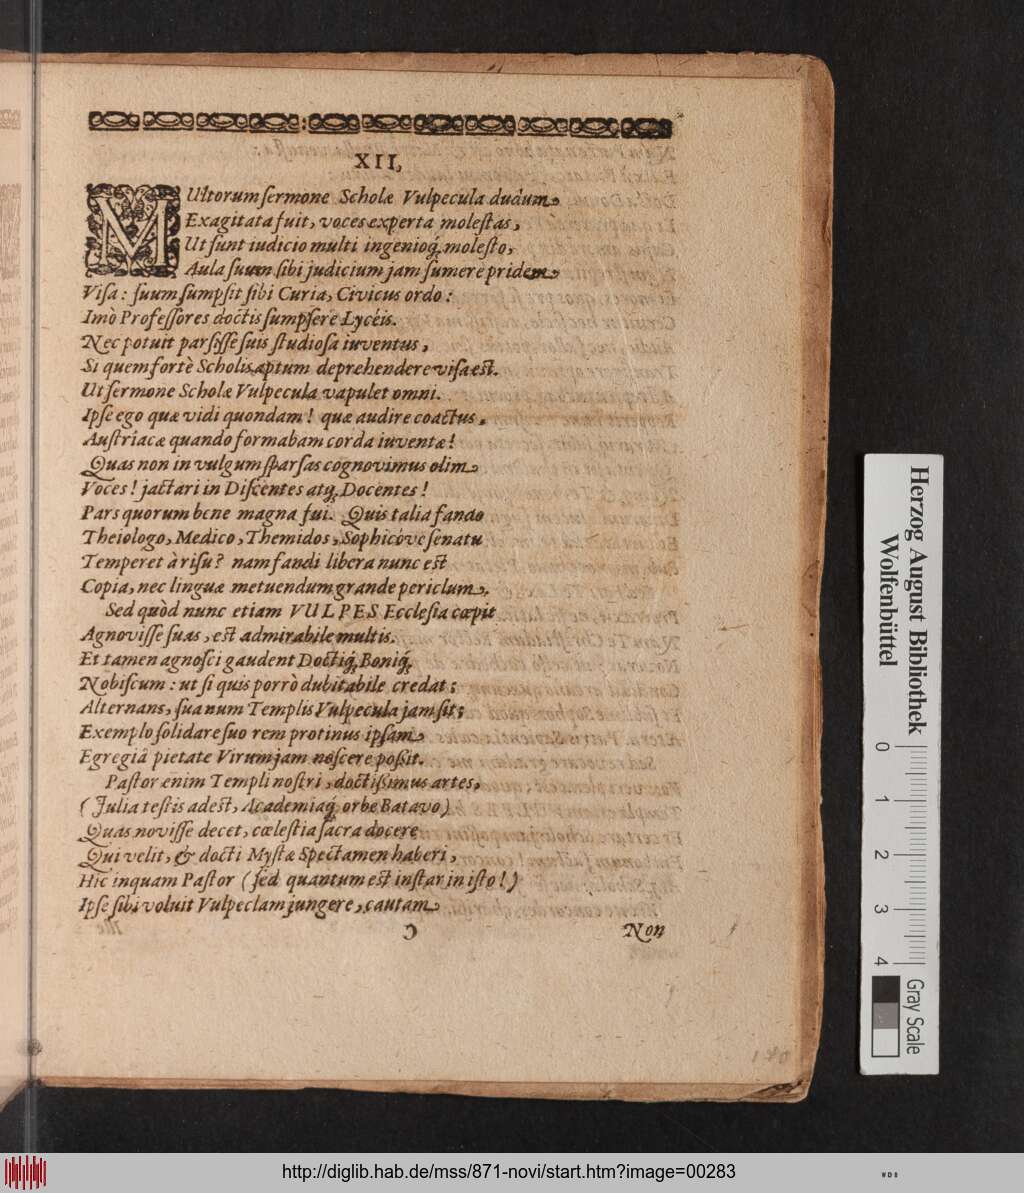 XII.
MUltorum ſermone Scholæ Vulpecula dudum
Exagitata fuit, voces experta moleſtas,
Ut ſunt iudicio multi ingenioq́; moleſto,
Aula ſuum ſibi judicium jam ſumere pridem
Viſa: ſuum ſumpſit ſibi Curia, Civicus ordo:
Imò Profeſſores doctis ſumpſere Lycéis.
Nec potuit parſiſſe ſuis ſtudioſa iuventus,
Si quem fortè Scholis aptum deprehendere viſa est.
Ut ſermone Scholæ Vulpecula vapulet omni.
Ipſe ego quæ vidi quondam! quæ audire coactus,
Auſtriacæ quando formabam corda iuventæ!
Quas non in vulgum ſparſas cognovimus olim
Voces! jactari in Diſcentes atq́; Docentes!
Pars quorum bene magna fui. Quis talia fando
Theiologo, Medico, Themidos, Sophicóve ſenatu
Temperet à riſu? nam fandi libera nunc est
Copia, nec linguæ metuendum grande periclum.
Sed quòd nunc etiam VULPES Eccleſia cœpit
Agnoviſſe ſuas, est admirabile multis.
Et tamen agnoſci gaudent Doctiq́; Boniq́;
Nobiſcum: ut ſi quis porrò dubitabile credat;
Alternans, ſua num Templis Vulpecula jam ſit;
Exemplo ſolidare ſuo rem protinus ipſam
Egregiâ pietate Virum jam noſcere poßit.
Paſtor enim Templi noſtri, doctißimus artes,
(Julia teſtis adest, Academiaq́; orbe Batavo)
Quas noviſſe decet, cœleſtia ſacra docere
Qui velit, & docti Myſtæ Spectamen haberi,
Hic inquam Paſtor (ſed quantum est inſtar in iſto!)
Ipſe ſibi voluit Vulpeclam jungere, cautam
C Non
Herzog August Bibliothek
Wolfenbüttel
0 1 2 3 4
Gray Scale
http://diglib.hab.de/mss/871-novi/start.htm?image=00283